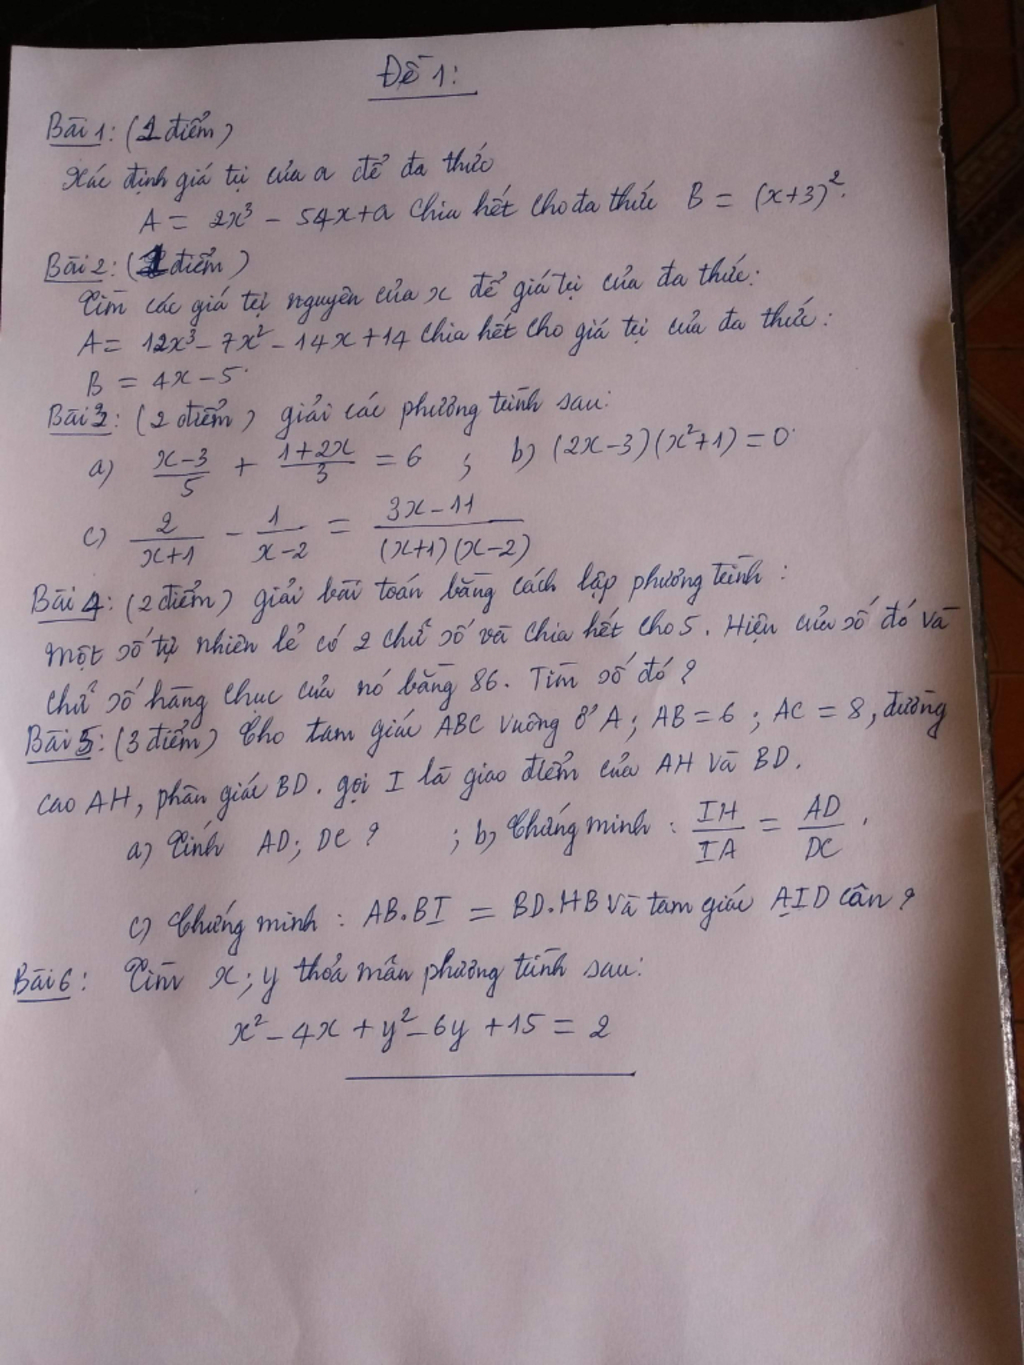 Đề 1:
Bài 1: (1 điểm)
Xác định giá trị của a để đa thức
A = 2x³ - 54x + a chia hết cho đa thức B = (x+3)².
Bài 2: (1 điểm)
Tìm các giá trị nguyên của x để giá trị của đa thức:
A = 12x³ - 7x² - 14x + 14 chia hết cho giá trị của đa thức:
B = 4x - 5.
Bài 3: (2 điểm) giải các phương trình sau:
a) (x-3)/5 + (1+2x)/3 = 6 ; b) (2x-3)(x²+1) = 0.
c) 2/(x+1) - 1/(x-2) = (3x-11)/((x+1)(x-2))
Bài 4: (2 điểm) giải bài toán bằng cách lập phương trình:
Một số tự nhiên lẻ có 2 chữ số và chia hết cho 5. Hiệu của số đó và
chữ số hàng chục của nó bằng 86. Tìm số đó?
Bài 5: (3 điểm) Cho tam giác ABC vuông ở A; AB = 6; AC = 8, đường
cao AH, phân giác BD. gọi I là giao điểm của AH và BD.
a) Tính AD; DC? ; b) Chứng minh: IH/IA = AD/DC.
c) Chứng minh: AB.BI = BD.HB và tam giác AID cân?
Bài 6: Tìm x; y thỏa mãn phương trình sau:
x² - 4x + y² - 6y + 15 = 2